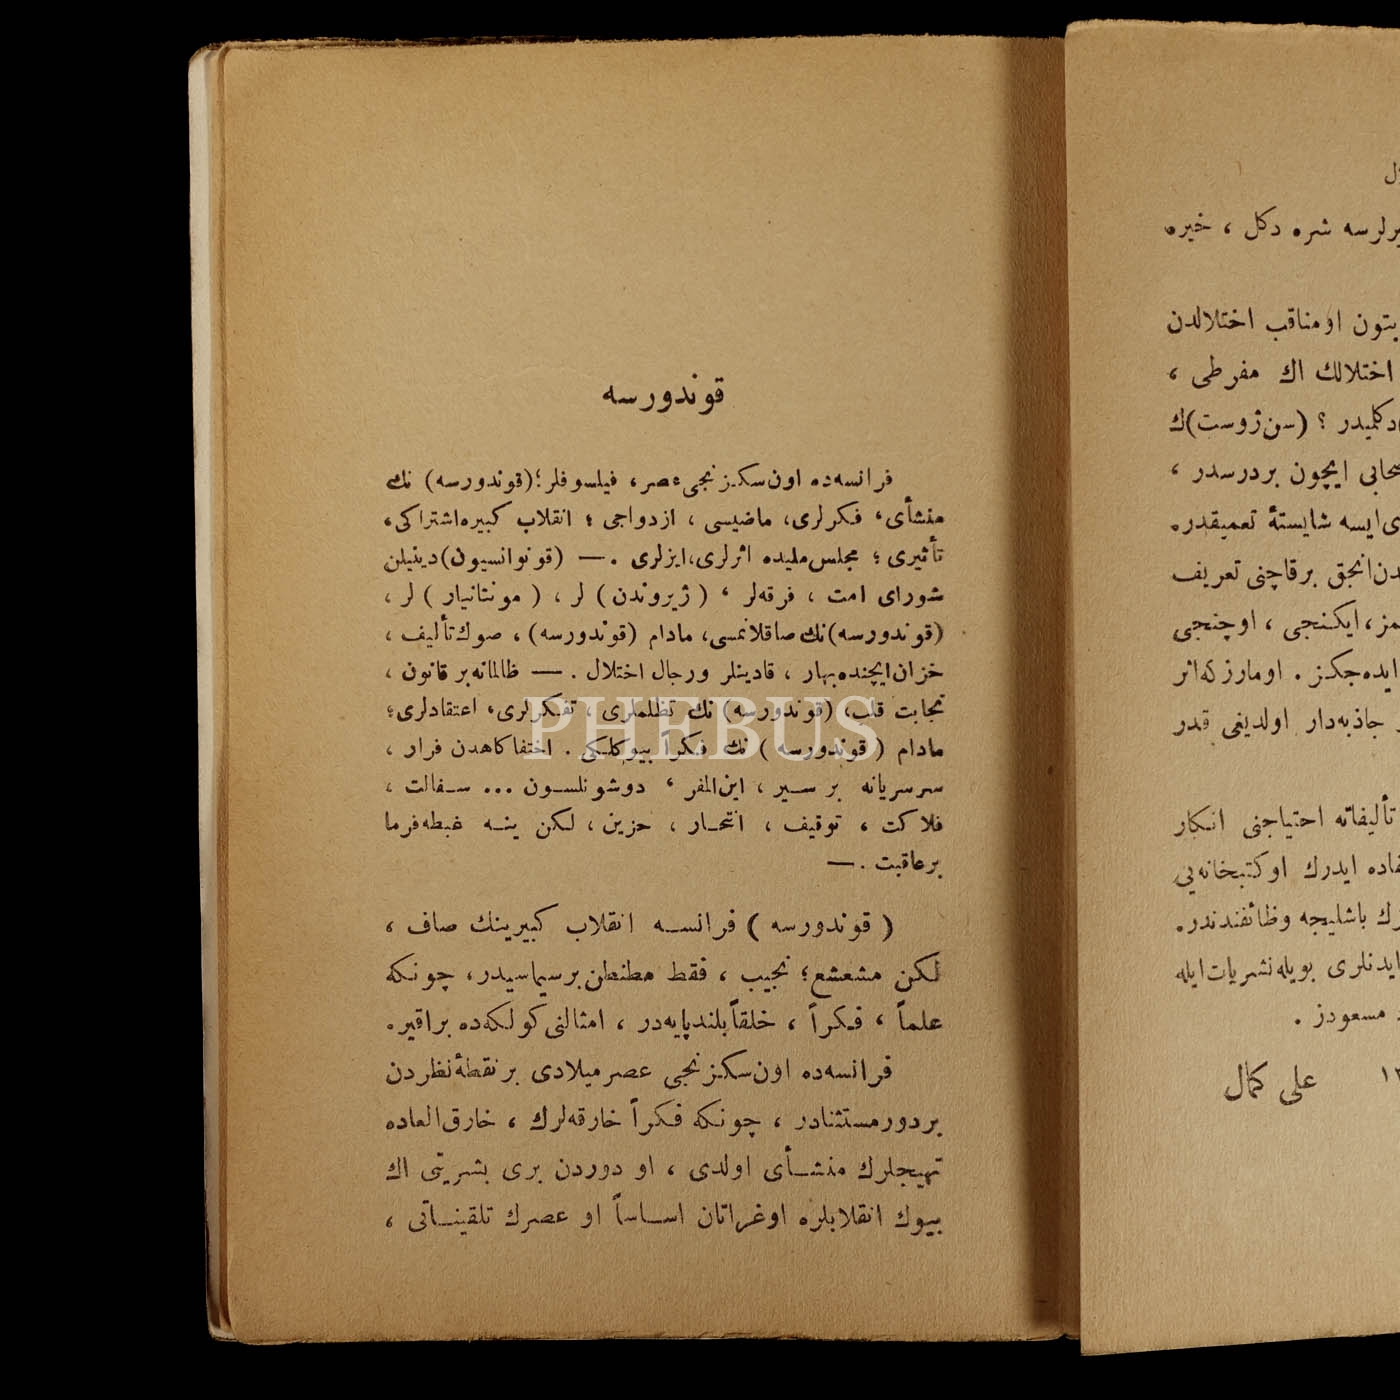 قوندورسه
فرانسه‌ده اون‌سكزنجی‌عصر، فيلسوفلر؛(قوندورسه) نك
منشأی، فكرلری، ماضيسی ، ازدواجی ؛ انقلاب كبيره‌اشتراكی،
تأثيری ؛ مجلس‌مليده اثرلری،ايزلری .— (قونوانسيون)دينيلن
شورای امت ، فرقه‌لر ، (ژيروندن) لر ، ( مونتانيار ) لر ،
(قوندورسه)نك‌صاقلانمسی، مادام (قوندورسه) ، صوك‌تأليف ،
خزان‌ايچنده‌بهار ، قادينلر ورجال اختلال . — ظالمانه‌بر قانون ،
نجابت قلب، (قوندورسه) نك تظلملری ، تفكرلری، اعتقادلری؛
مادام ( قوندورسه ) نك فكراً بيوكلكی . اختفاكاهدن فرار ،
سرسريانه بر سير ، اين‌المفر ، دوشونلسون ... سفالت ،
فلاكت ، توقيف ، انتحار ، حزين ، لكن ينه غبطه‌فرما
برعاقبت .—
( قوندورسه ) فرانسه انقلاب كبيرينك صاف ،
لكن مشعشع؛ نجيب ، فقط مطنطن‌برسيماسيدر، چونكه
علماً ، فكراً ، خلقاًبلندپايه‌در ، امثالنی‌كولكه‌ده براقير.
فرانسه‌ده اون‌سكزنجی عصرميلادی برنقطۀ‌نظردن
بردورمستثنادر ، چونكه فكراً خارقه‌لرك ، خارق‌العاده
تهيجلرك منشأی اولدی ، او دوردن بری بشريتی اك
بيوك انقلابلره اوغراتان اساساً او عصرك تلقيناتی ،
PHEBUS
يرلرسه شره دكل ، خيره
بتون اومناقب اختلالدن
اختلالك اك مفرطی ،
دكلميدر ؟ (سن‌ژوست)ك
ايچون بردرسدر ،
ايسه شايستۀ تعميقدر.
انجق برقاچنی تعريف
ايكنجی ، اوچنجی
ايده‌جكز . اومارزكه‌اثر
جاذبه‌دار اولديغی قدر
تأليفاته احتياجنی انكار
ايدرك اوكتبخانه‌يی
باشليجه وظائفندندر.
ايدنلری بويله‌نشريات‌ايله
مسعودز .
علی كمال